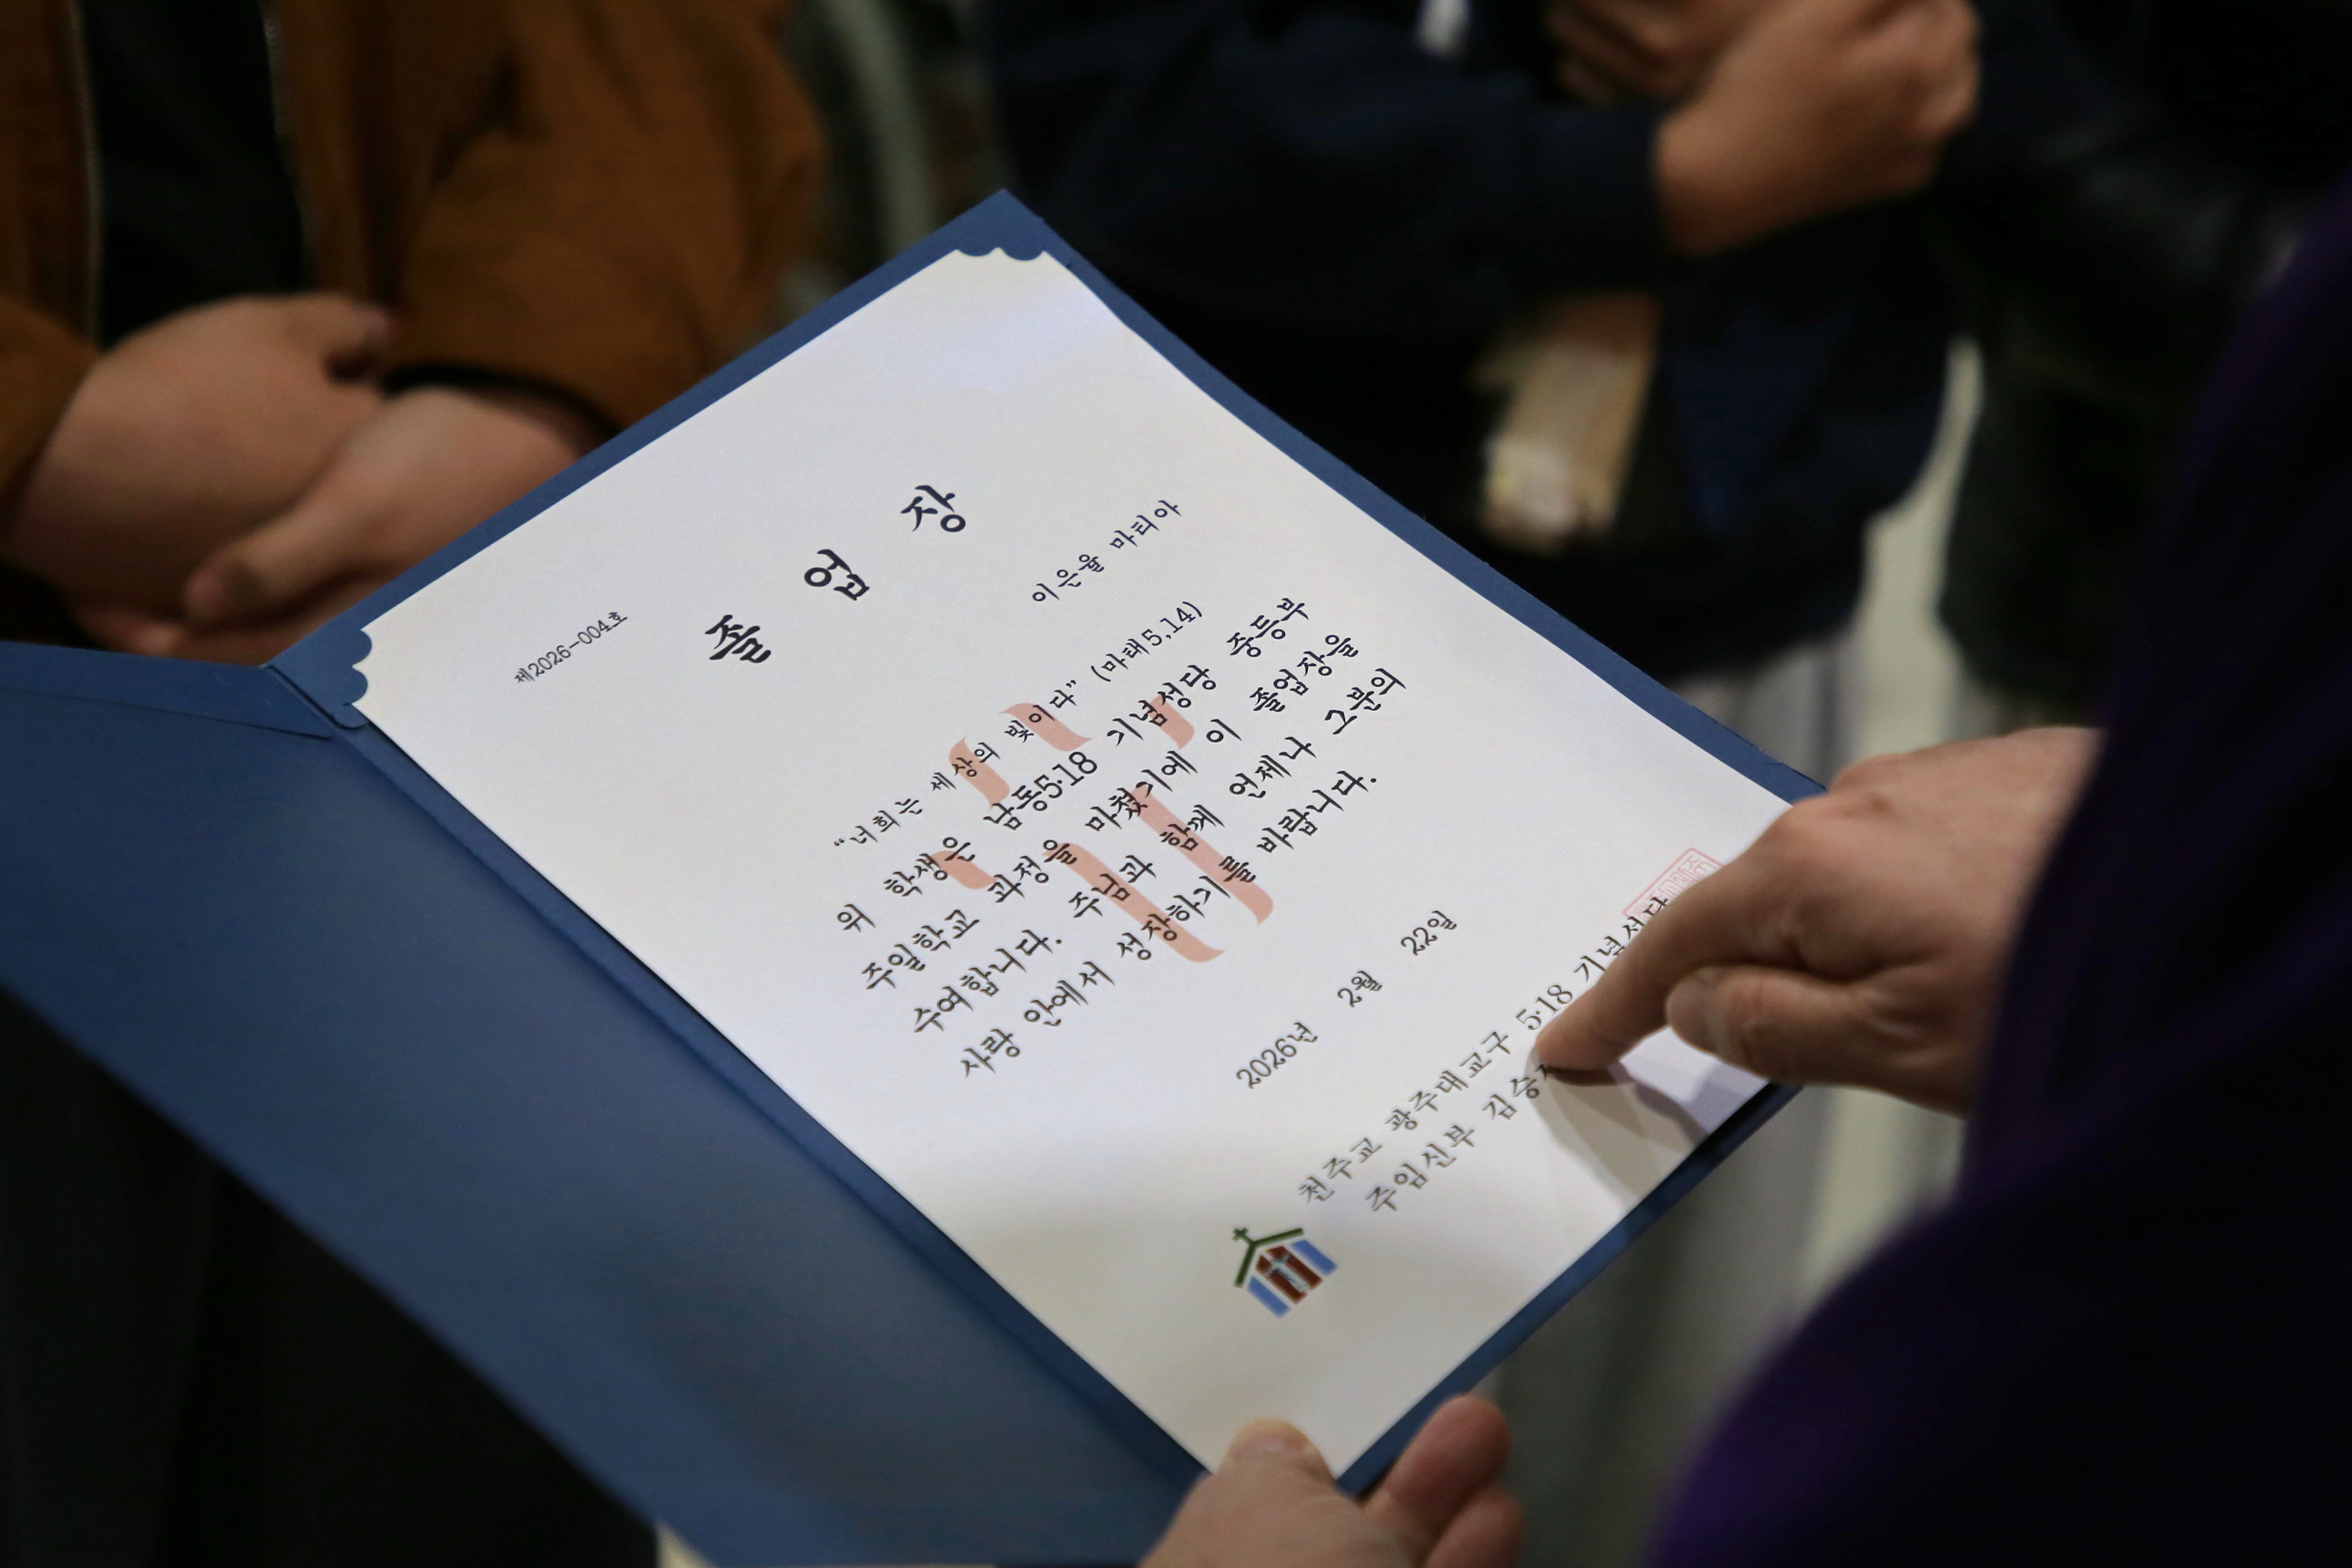 제2026-004호
졸 업 장
이은율 마티아
“너희는 세상의 빛이다” (마태5,14)
위 학생은 남동5·18 기념성당 중등부
주일학교 과정을 마쳤기에 이 졸업장을
수여합니다. 주님과 함께 언제나 그분의
사랑 안에서 성장하기를 바랍니다.
2026년 2월 22일
천주교 광주대교구 5·18 기념성당
주임신부 김승